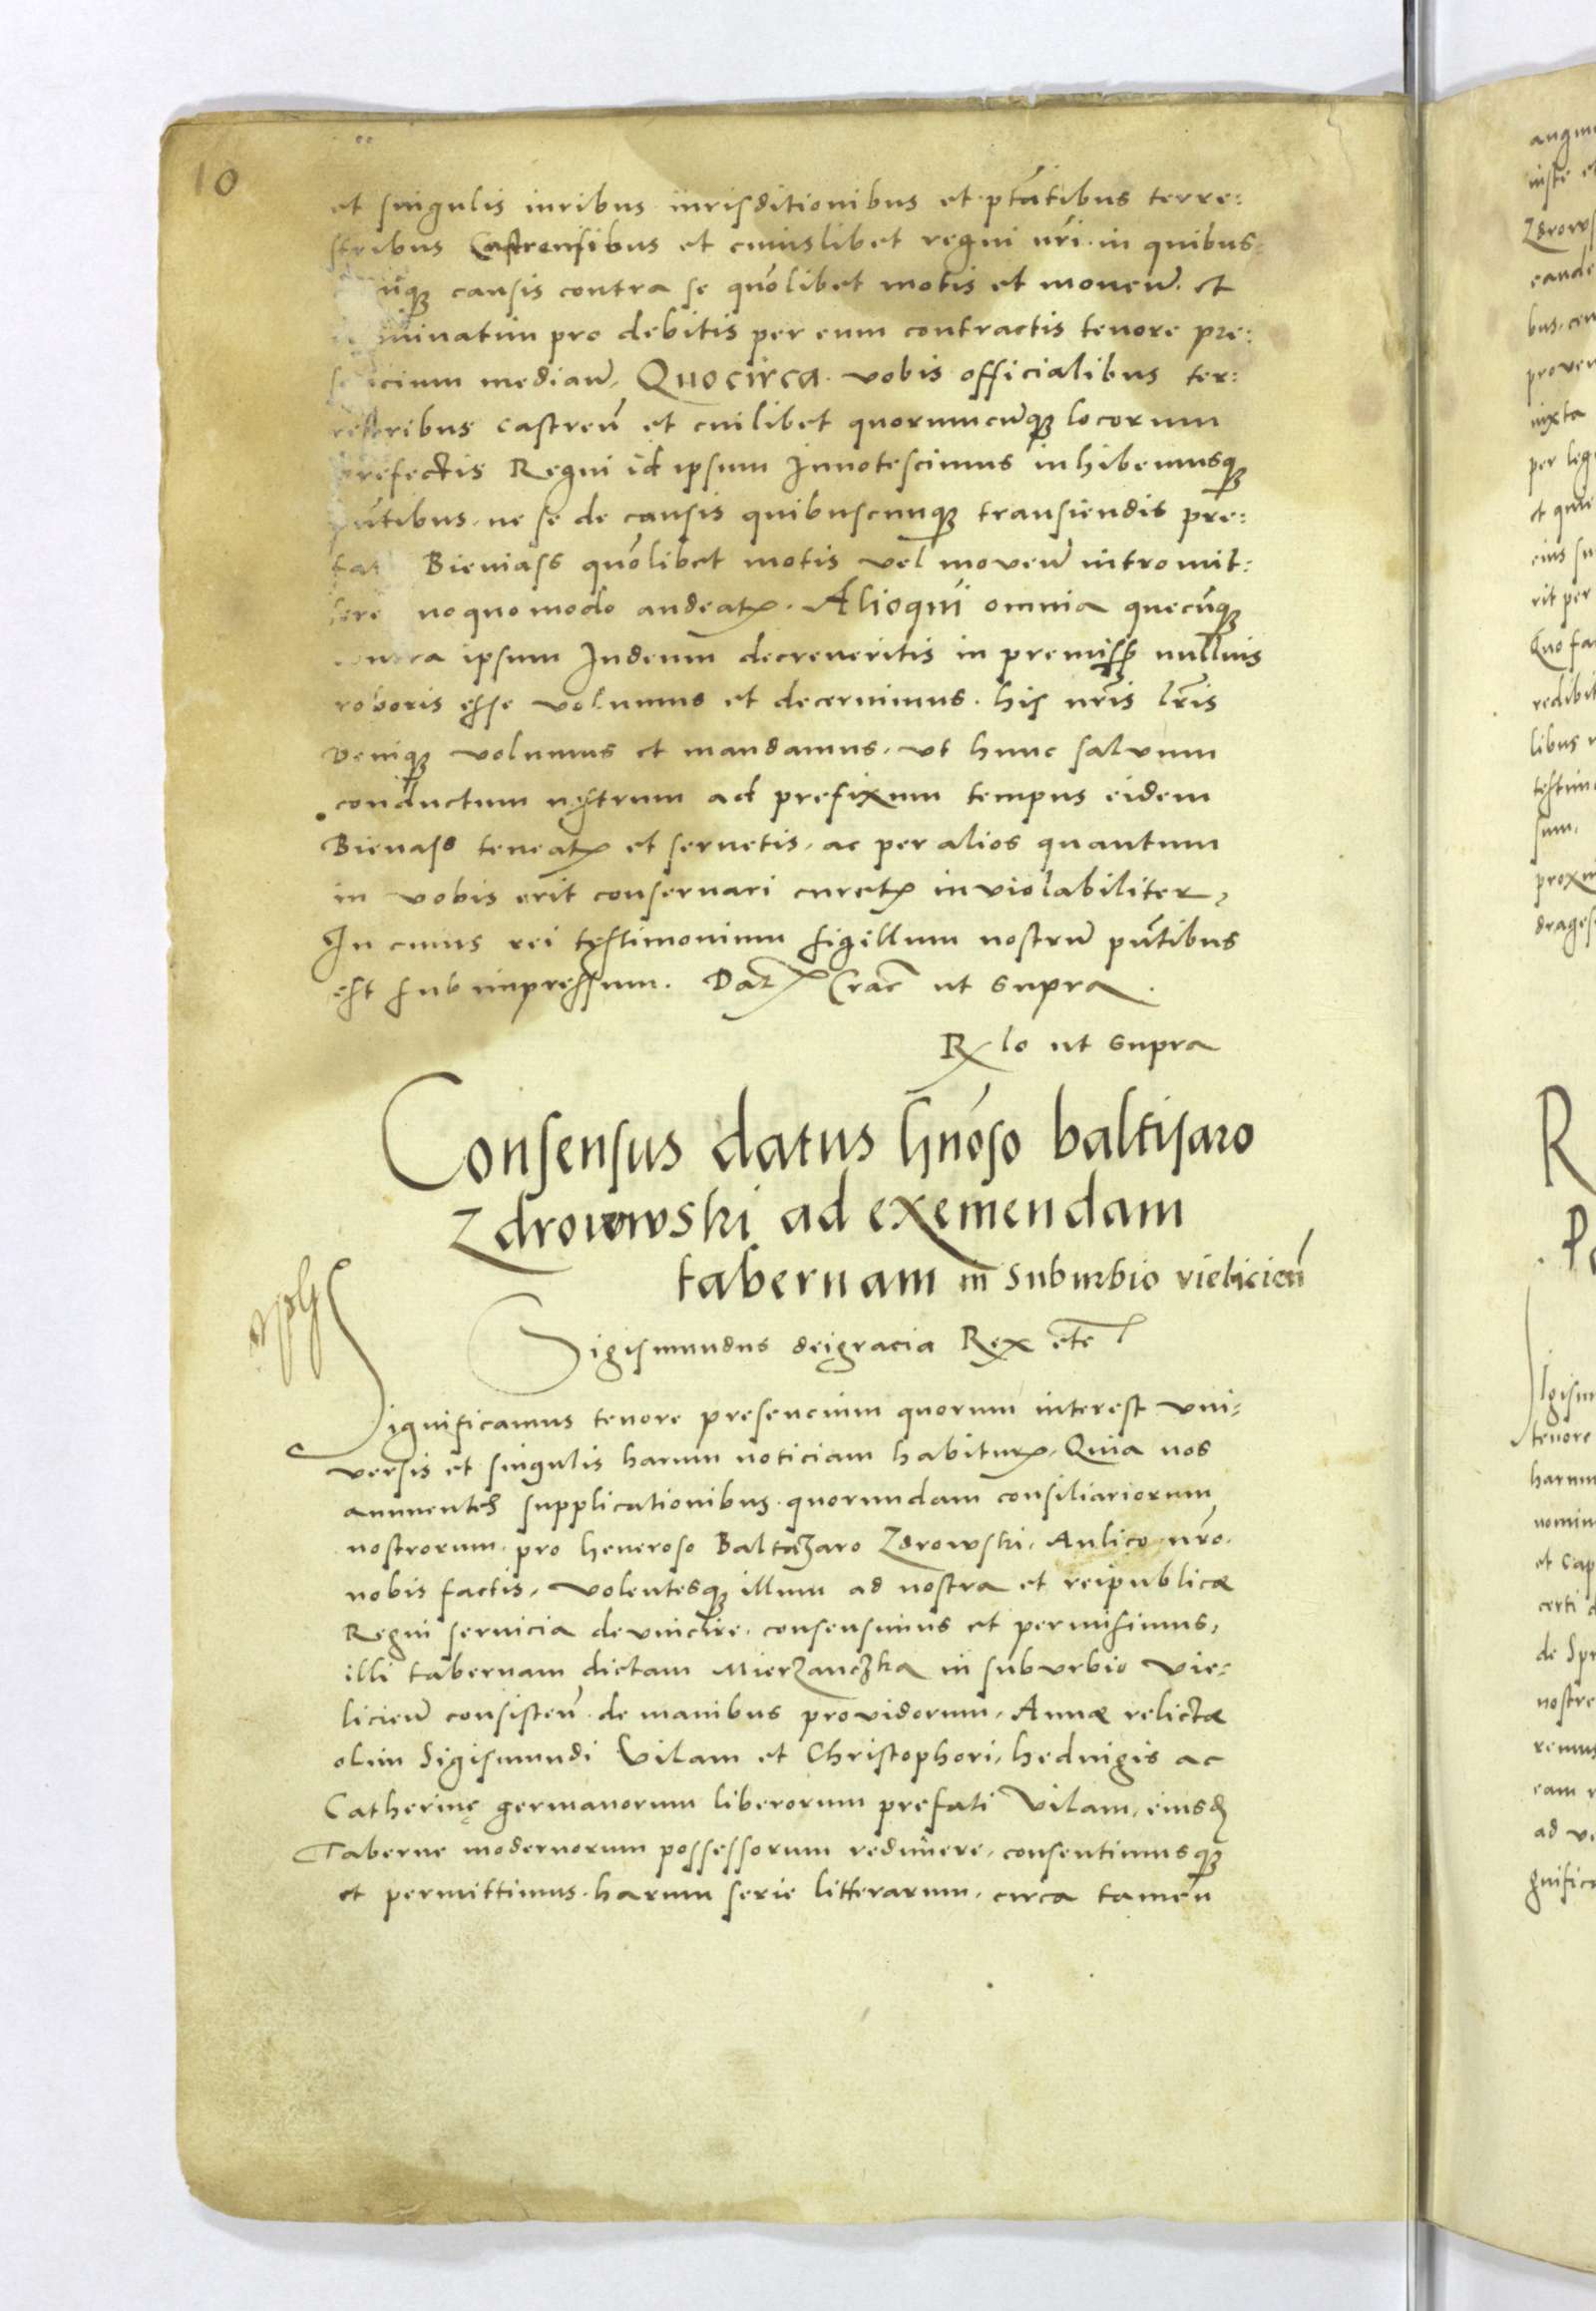 10
et singulis iuribus iurisditionibus et ptātibus terre:
stribus Castrensibus et cuiuslibet regni nr̄i in quibus:
ūq3 causis contra se quōlibet motis et mouen̄. et
minatim pro debitis per eum contractis tenore pre:
cium median̄. Quocirca vobis officialibus ter:
restribus castren̄ et cuilibet quorumcūq3 locorum
prefectis Regni id ipsum Innotescimus inhibemusq3
pn̄tibus. ne se de causis quibuscunq3 transiendis pre:
fat Bieniass quōlibet motis vel mouen̄ intromit:
tere noquomodo audeatꝭ. Alioqui omnia quecūq3
contra ipsum Iudeum decreueritis in premiss̄ nullius
roboris esse volumus et decernimus. his nr̄is lr̄is
Deniq3 volumus et mandamus. vt hunc saluum
conductum nostrum ad prefixum tempus eidem
Bienass teneatꝭ et seruetis. ac per alios quantum
in vobis erit conseruari curetꝭ inviolabiliter,
In cuius rei testimonium sigillum nostrū pn̄tibus
est subimpressum. Datꝭ Crac̄ ut supra.
Rꝭlo ut supra
Consensus datus Gn̄oso baltisaro
Zdrowwski ad exemendam
tabernam in Suburbio vielicien̄
Sigismundus deigracia Rex etc̄
Significamus tenore presencium quorum interest vni:
versis et singulis harum noticiam habiturꝭ. Quia nos
annuentes supplicationibus quorundam consiliariorum
nostrorum pro Generoso Baltazaro Zdrowski. Aulico nr̄o.
nobis factis. volentesq3 illum ad nostra et reipublicæ
Regni seruicia deuincire. consensimus et permisimus,
illi tabernam dictam Mierzanczka in suburbio vie:
licien̄ consisten̄. de manibus providorum. Annæ relictæ
olim Sigismundi Vilam et Christophori, heduigis ac
Catherinę germanorum liberorum prefati Vilam. eiusd̄
Taberne modernorum possessorum redimere. consentimusq3
et permittimus harum serie litterarum. circa tamen